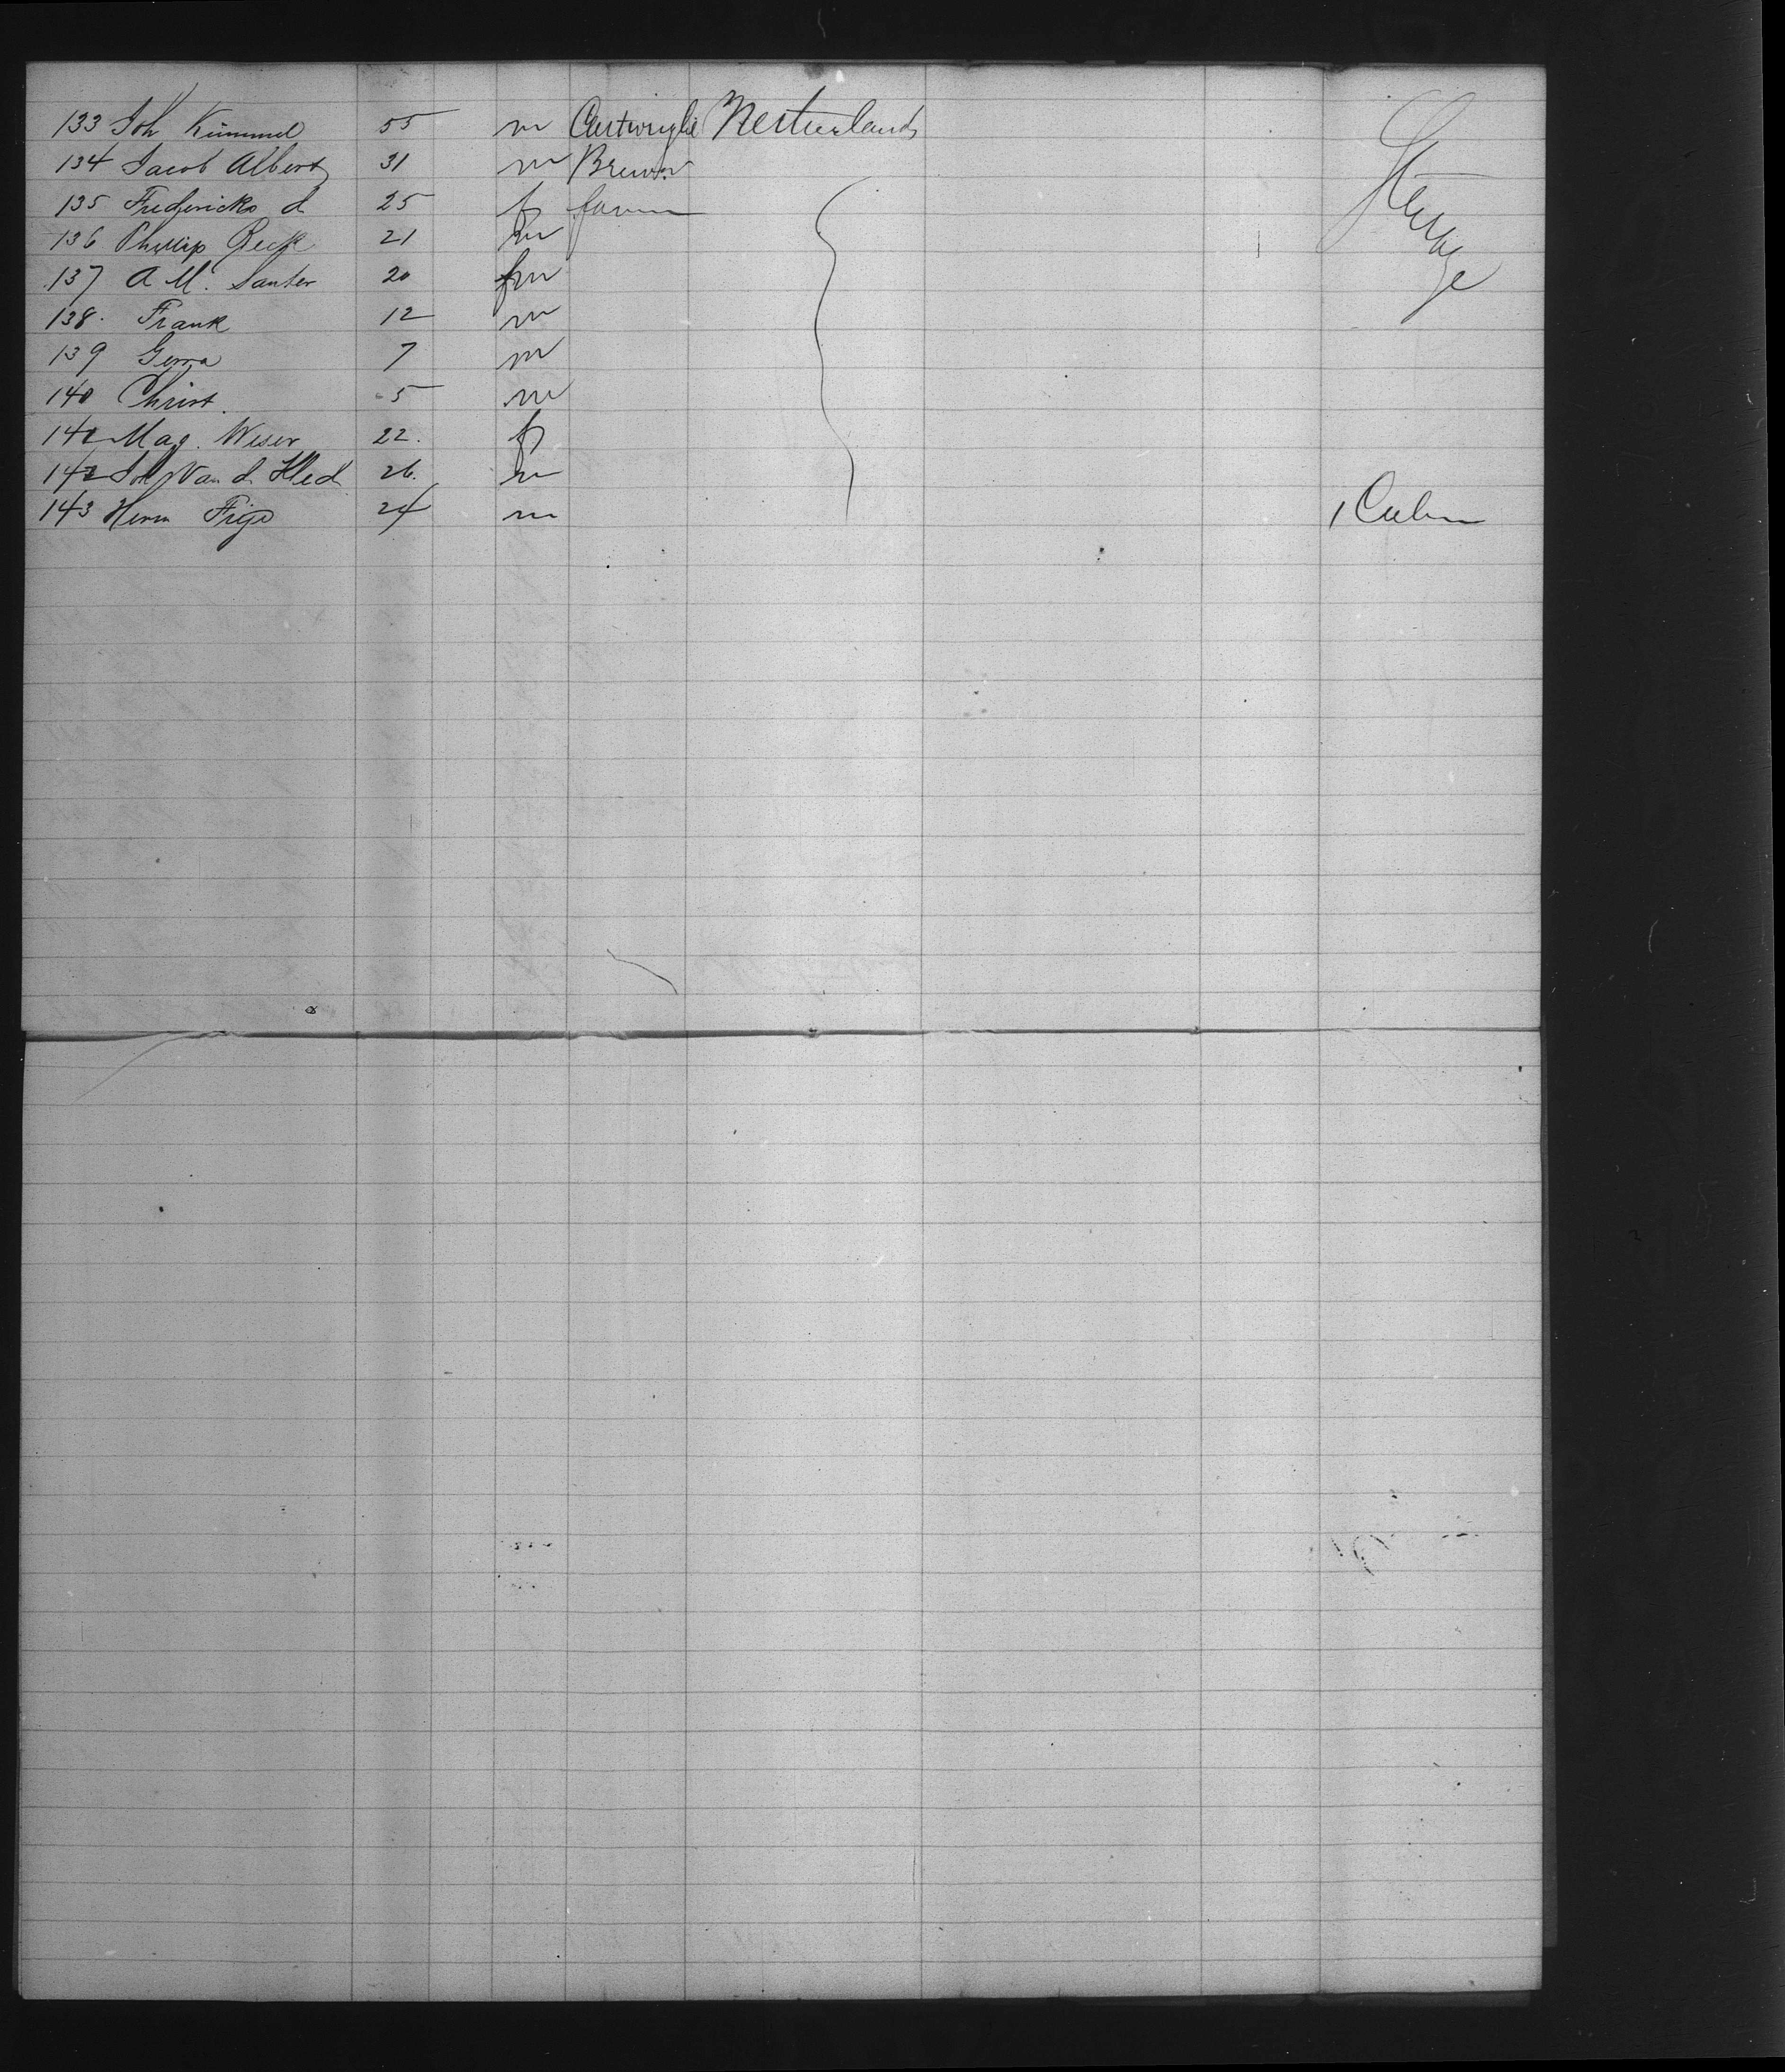 133 Joh Kümmel 55 m Cartwright Netherlands
134 Jacob Albert 31 m Brewer
135 Fredericke d 25 f farm
136 Phillip Beck 21 m
137 A M. Santer 20 m
138. Frank 12 m
139 7 m
140 Christ. 5 m
141 Mag. Weser 22. f
142 Joh Van d 26. m
143 Herm 24 m 1 Cabin
Steerage